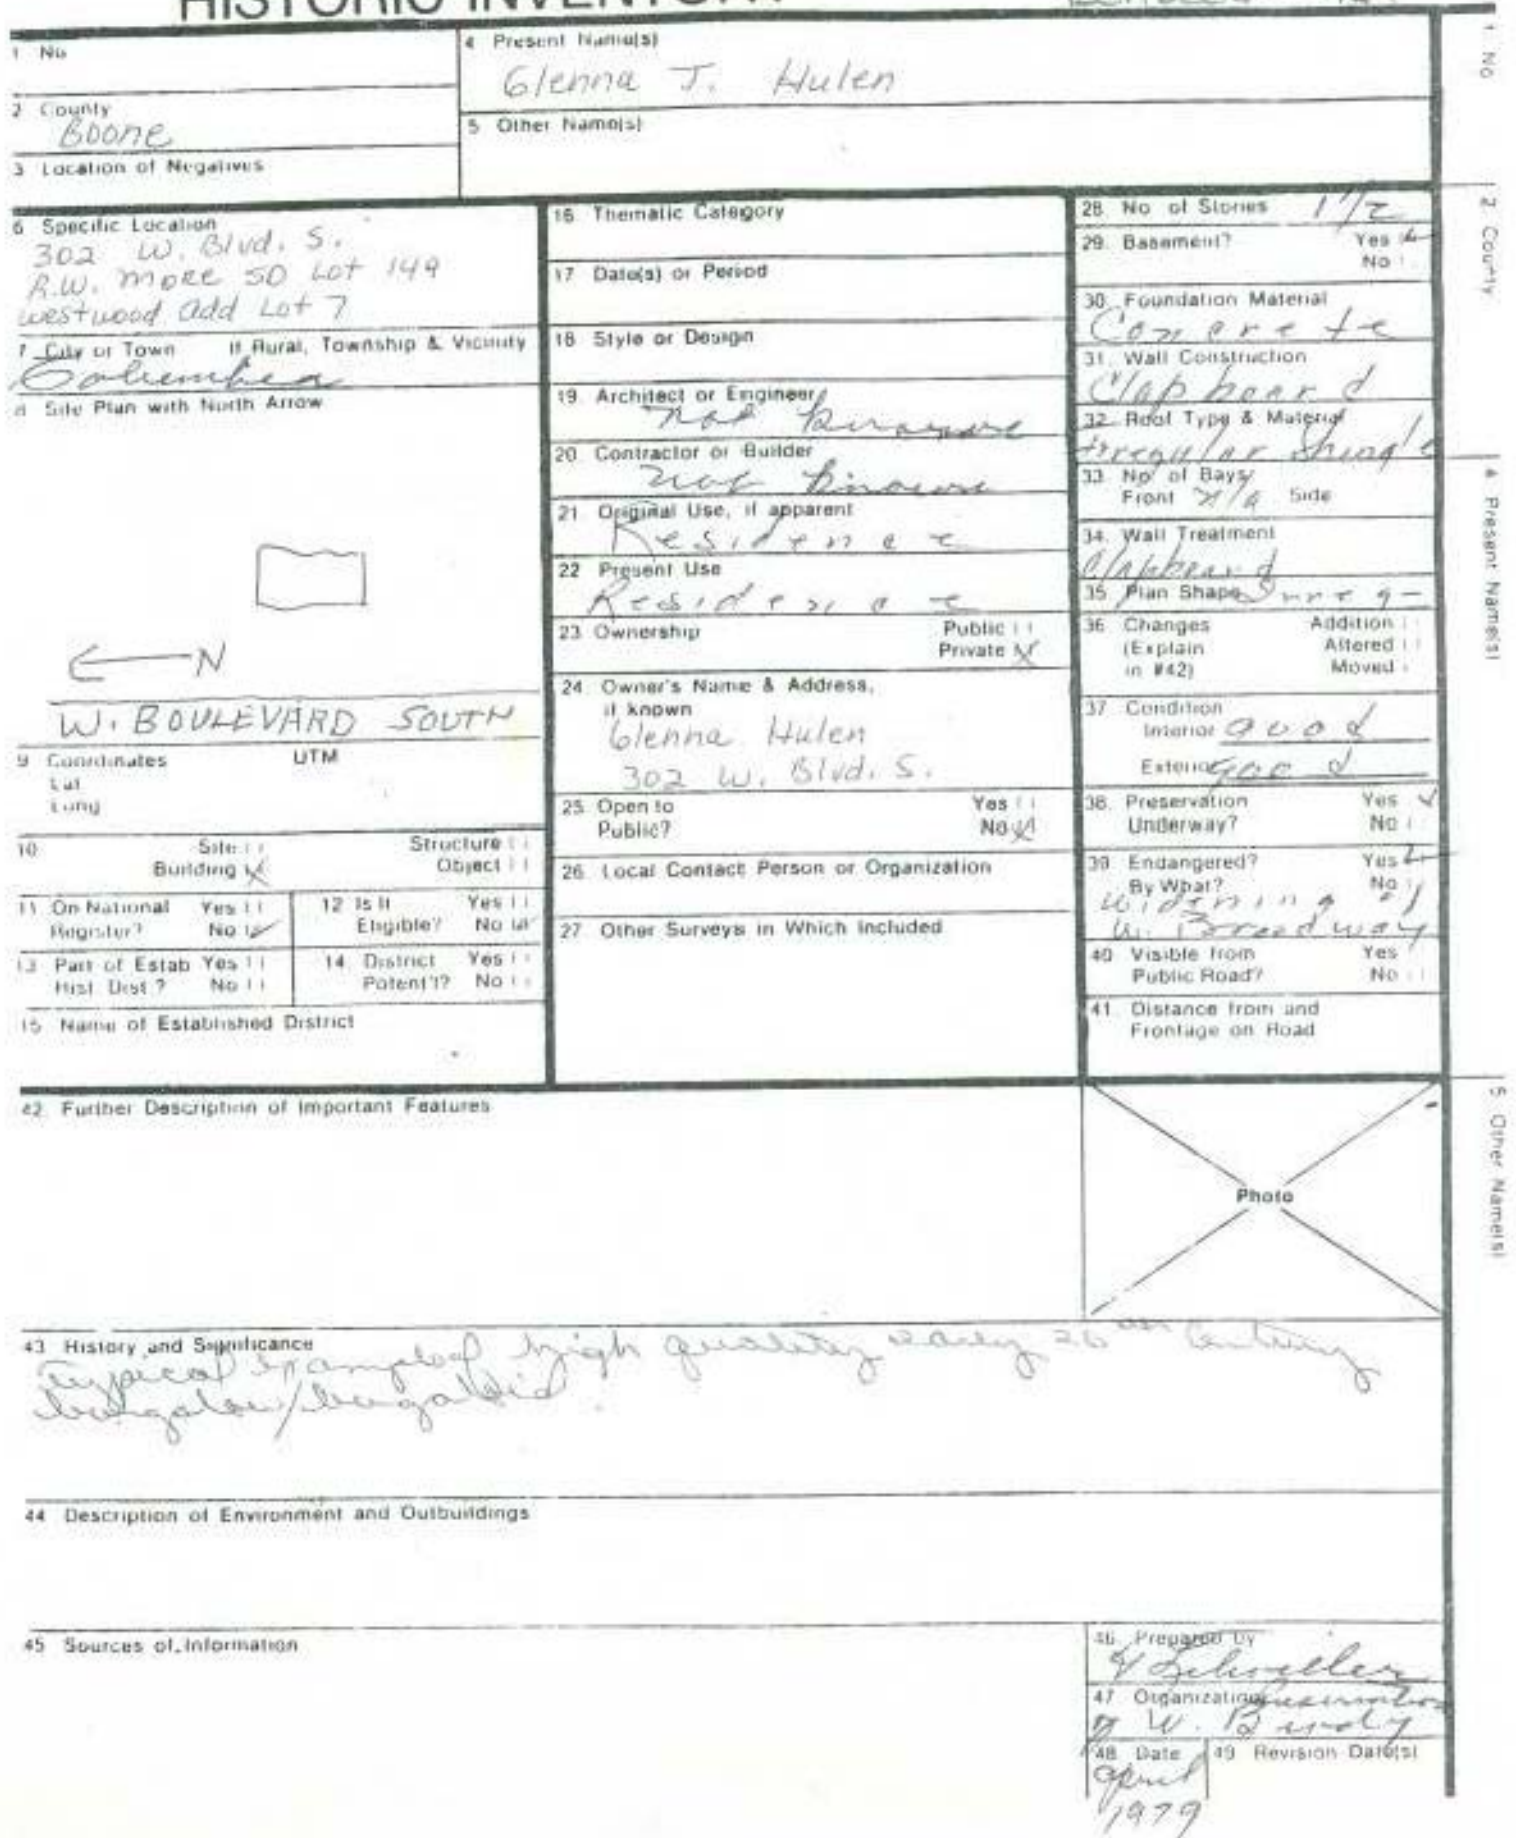 HISTORIC INVENTORY
1 No
4 Present Name(s)
Glenna J. Hulen
2 County
Boone
5 Other Name(s)
3 Location of Negatives
6 Specific Location
302 W. Blvd. S.
R.W. MORE SD Lot 149
Westwood add Lot 7
7 City or Town If Rural, Township & Vicinity
Columbia
8 Site Plan with North Arrow
N
W. BOULEVARD SOUTH
9 Coordinates UTM
Lat
Long
10 Site Structure
Building X Object
11 On National Register? Yes No ✓
12 Is It Eligible? Yes No ✓
13 Part of Estab Hist Dist? Yes No
14 District Potent'l? Yes No
15 Name of Established District
16 Thematic Category
17 Date(s) or Period
18 Style or Design
19 Architect or Engineer
not known
20 Contractor or Builder
not known
21 Original Use, if apparent
Residence
22 Present Use
Residence
23 Ownership Public
Private X
24 Owner's Name & Address,
if known
Glenna Hulen
302 W. Blvd. S.
25 Open to Yes
Public? No ✓
26 Local Contact Person or Organization
27 Other Surveys in Which Included
28 No of Stories 1 1/2
29 Basement? Yes ✓
No
30 Foundation Material
Concrete
31 Wall Construction
Clapboard
32 Roof Type & Material
irregular shingle
33 No of Bays
Front N/A Side
34 Wall Treatment
Clapboard
35 Plan Shape
36 Changes Addition
(Explain Altered
in #42) Moved
37 Condition
Interior good
Exterior good
38 Preservation Yes ✓
Underway? No
39 Endangered? Yes ✓
By What? No
widening of
W. Broadway
40 Visible from Yes
Public Road? No
41 Distance from and
Frontage on Road
42 Further Description of Important Features
Photo
43 History and Significance
typical example of high quality early 20th Century
bungalow/bungaloid.
44 Description of Environment and Outbuildings
45 Sources of Information
46 Prepared by
47 Organization
W. Bundy
48 Date
April
1979
49 Revision Date(s)
1 No
2 County
4 Present Name(s)
5 Other Name(s)